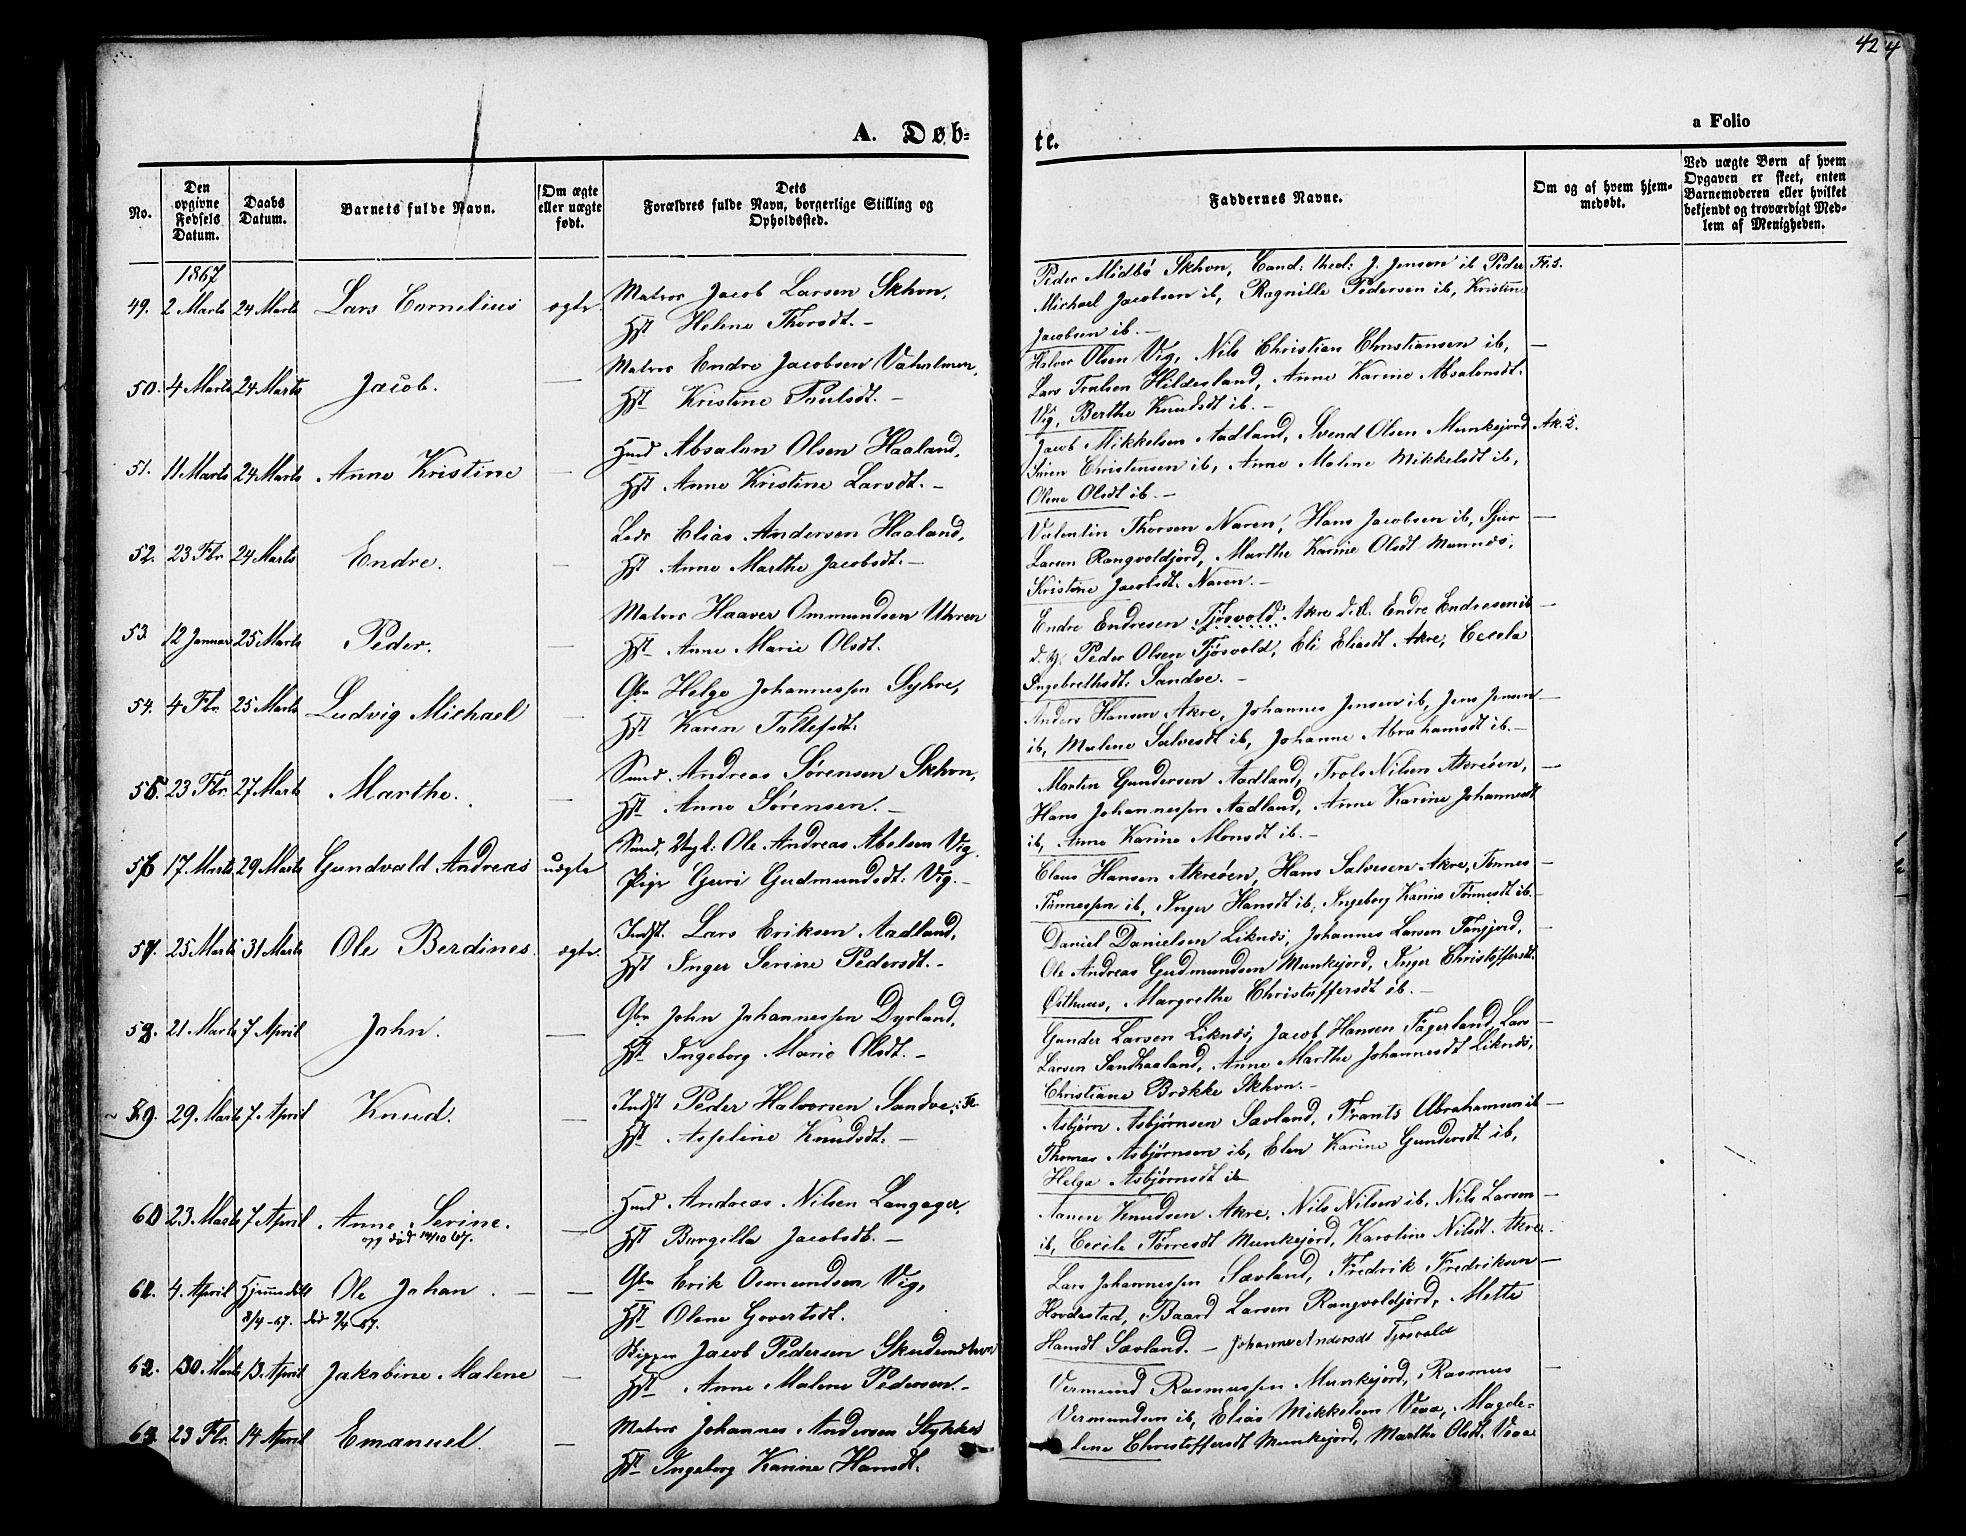 424
A. Døb-
te.
a Folio
No.
Den opgivne Fødsels Datum.
Daabs Datum.
Barnets fulde Navn.
Om ægte eller uægte født.
Dets Forældres fulde Navn, borgerlige Stilling og Opholdssted.
Faddernes Navne.
Om og af hvem hjemmedøbt.
Ved uægte Børn af hvem Opgaven er skeet, enten Barnemoderen eller hvilket bekjendt og troværdigt Medlem af Menigheden.
1867
49. 2 Marts 24 Marts Lars Cornelius ægte. Matros Jacob Larsen Skhvn,
Hst Helene Thorsdt. –
Peder Midbó Skhvn, Cand: theol: J. Jensen ib Peder
Michael Jacobsen ib, Ragnille Pedersen ib, Kristine
Jacobsen ib. –
50. 4 Marts 24 Marts Jacob. — Matros Endre Jacobsen
Hst Kristine Paulsdt. –
Halvor Olsen Vig, Nils Christian Christiansen ib, —
Lars Trulsen Hildesland, Anne Karine Absalonsdt.
Vig, Berthe Knudsdt ib. –
51. 11 Marts 24 Marts Anne Kristine — Hmd Absalon Olsen Haaland,
Hst Anne Kristine Larsdt. –
Jacob Mikkelsen Aadland, Svend Olsen Munkejord
Sören Christensen ib, Anne Malene Mikkelsdt ib,
Olene Olsdt ib. –
52. 23 Fbr. 24 Marts Endre. — Elias Andersen Haaland,
Hst Anne Marthe Jacobsdt. –
Valentin Thorsen Naren, Hans Jacobsen ib, Sjur —
Larsen Rangvoldjord, Marthe Karine Olsdt Mannes,
Kristine Jacobsdt. Naren. –
53. 12 Januar 25 Marts Peder. Matros Haaver Ommundsen Uhren
Hst Anne Marie Olsdt.
Endre Endresen Tjösvold Akre d. æ. Endre Endresen ib —
d. y. Peder Olsen Tjösvold, Eli Eliasdt Akre, Cecela
Ingebrethsdt. Sandve. –
54. 4 Fbr. 25 Marts Ludvig Michael — Gbr Helge Johannessen Syhre,
Hst Karen Tollefsdt.
Anders Hansen Akre, Johannes Jensen ib, Jens Jensen —
ib, Malene Salvesdt ib, Johanne Abrahamsdt ib. –
55. 23 Fbr. 27 Marts Marthe. — Andreas Sörensen Skhvn,
Hst Anne Sörensen. –
Martin Gundersen Aadland, Trols Nilsen Akreöen, —
Hans Johannessen Aadland, Anne Karine Johannesdt
ib, Anne Karine Monsdt ib. –
56. 17. Marts 29 Marts Gundvald Andreas uægte Ungk: Ole Andreas Abelsen Vig.
Pige Guri Gudmundsdt. Vig. –
Claus Hansen Akreöen, Hans Salvesen Akre, Tönnes —
Tönnessen ib, Inger Hansdt ib, Ingeborg Karine Tönnesdt ib. –
57. 25 Marts 31 Marts Ole Berdines. ægte. Indst. Lars Eriksen Aadland,
Hst Inger Serine Pedersdt. –
Daniel Danielsen Liknes, Johannes Larsen —
Ole Andreas Gudmundsen Munkejord, Inger Christoffersdt.
Östhuus, Margrethe Christoffersdt ib. –
58. 21 Marts 7 April John. — Gbr John Johannessen Dyrland,
Hst Ingeborg Marie Olsdt. –
Gunder Larsen Liknes, Jacob Hansen Fagerland, Lars —
Larsen Sandhaaland, Anne Marthe Johannesdt Liknes,
Christiane Brække Skhvn. –
59. 29. Marts 7 April Knud. — Indst Peder Halvorsen Sandve,
Hst Asseline Knudsdt. –
Asbjörn Asbjörnsen Sævland, Frants Abrahamsen ib —
Thomas Asbjörnsen ib, Elen Karine Gundersdt ib,
Helga Asbjörnsdt ib
60 23. Marts 7 April Anne Serine. — Hmd Andreas Nilsen Langager,
og død 14/10 67. Hst Borgilla Jacobsdt. –
Knudsen Akre, Nils Nilsen ib, Nils Larsen —
ib, Cecile Torresdt Munkejord, Karoline Nilsdt. Akre.
61. 4. April Hjemmedöbt Ole Johan. — — Gbr Erik Osmundsen Vig,
8/4-67. död 9/4 67. Hst Olene Govertsdt.
Lars Johannessen Sævland, Fredrik Fredriksen —
Hovdestad, Baard Larsen Rangvoldjord, Mette
Hansdt Sævland. – Johanne Andersdt Tjösvold
62. 30. Marts 13. April Jakobine Malene — Skipper Jacob Pedersen Skudesneshavn
Hst Anne Malene Pedersen. –
Vermund Rasmussen Munkejord, Rasmus —
Vermundsen ib, Elias Mikkelsen Veaa, Magde-
lene Christoffersdt Munkejord, Marthe Olsdt. Veaa
63. 23 Fbr. 14 April Emanuel. — Matros Johannes Andersen Stykket
Hst Ingeborg Karine Hansdt.